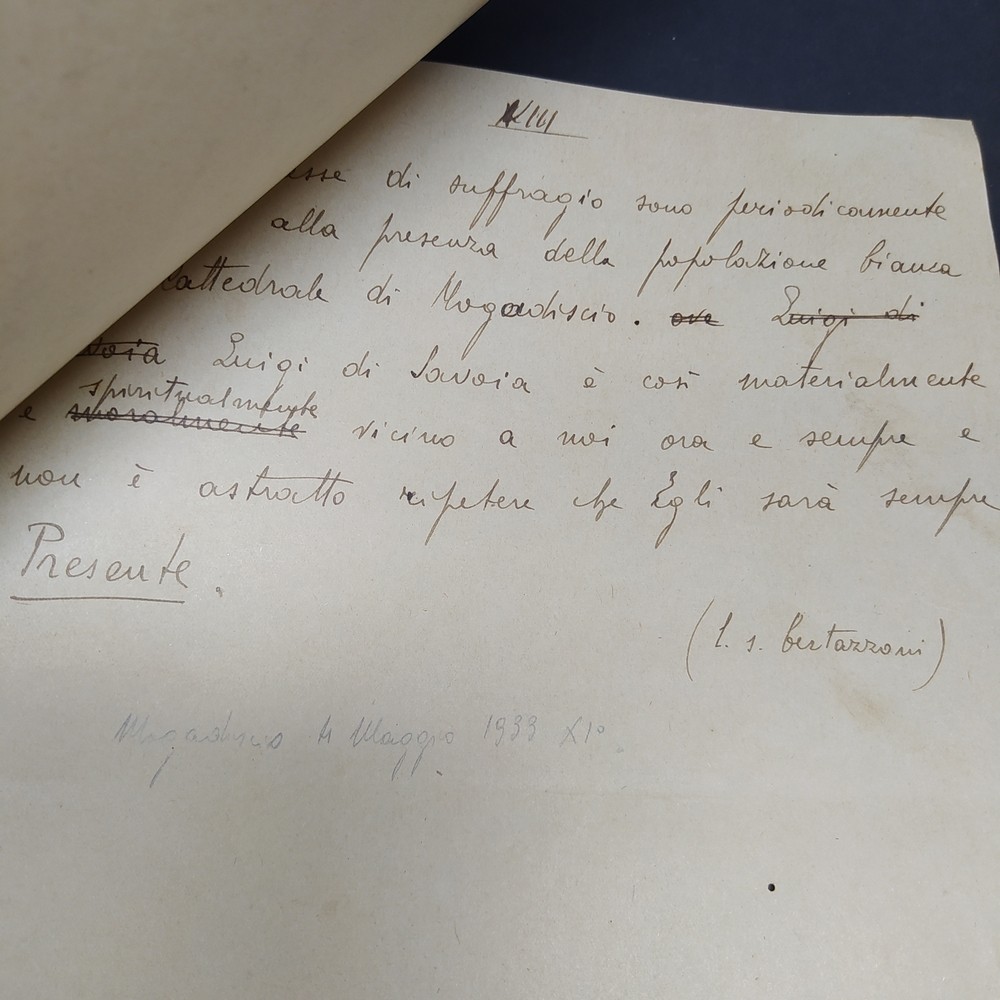 XIII
esse di suffragio sono periodicamente
alla presenza della popolazione bianca
cattedrale di Mogadiscio. ove Luigi di
Savoia Luigi di Savoia è così materialmente
spiritualmente
e moralmente vicino a noi ora e sempre e
non è astratto ripetere che Egli sarà sempre
Presente.
(l. s. bertazzoni)
Mogadiscio 4 Maggio 1933 XI°.